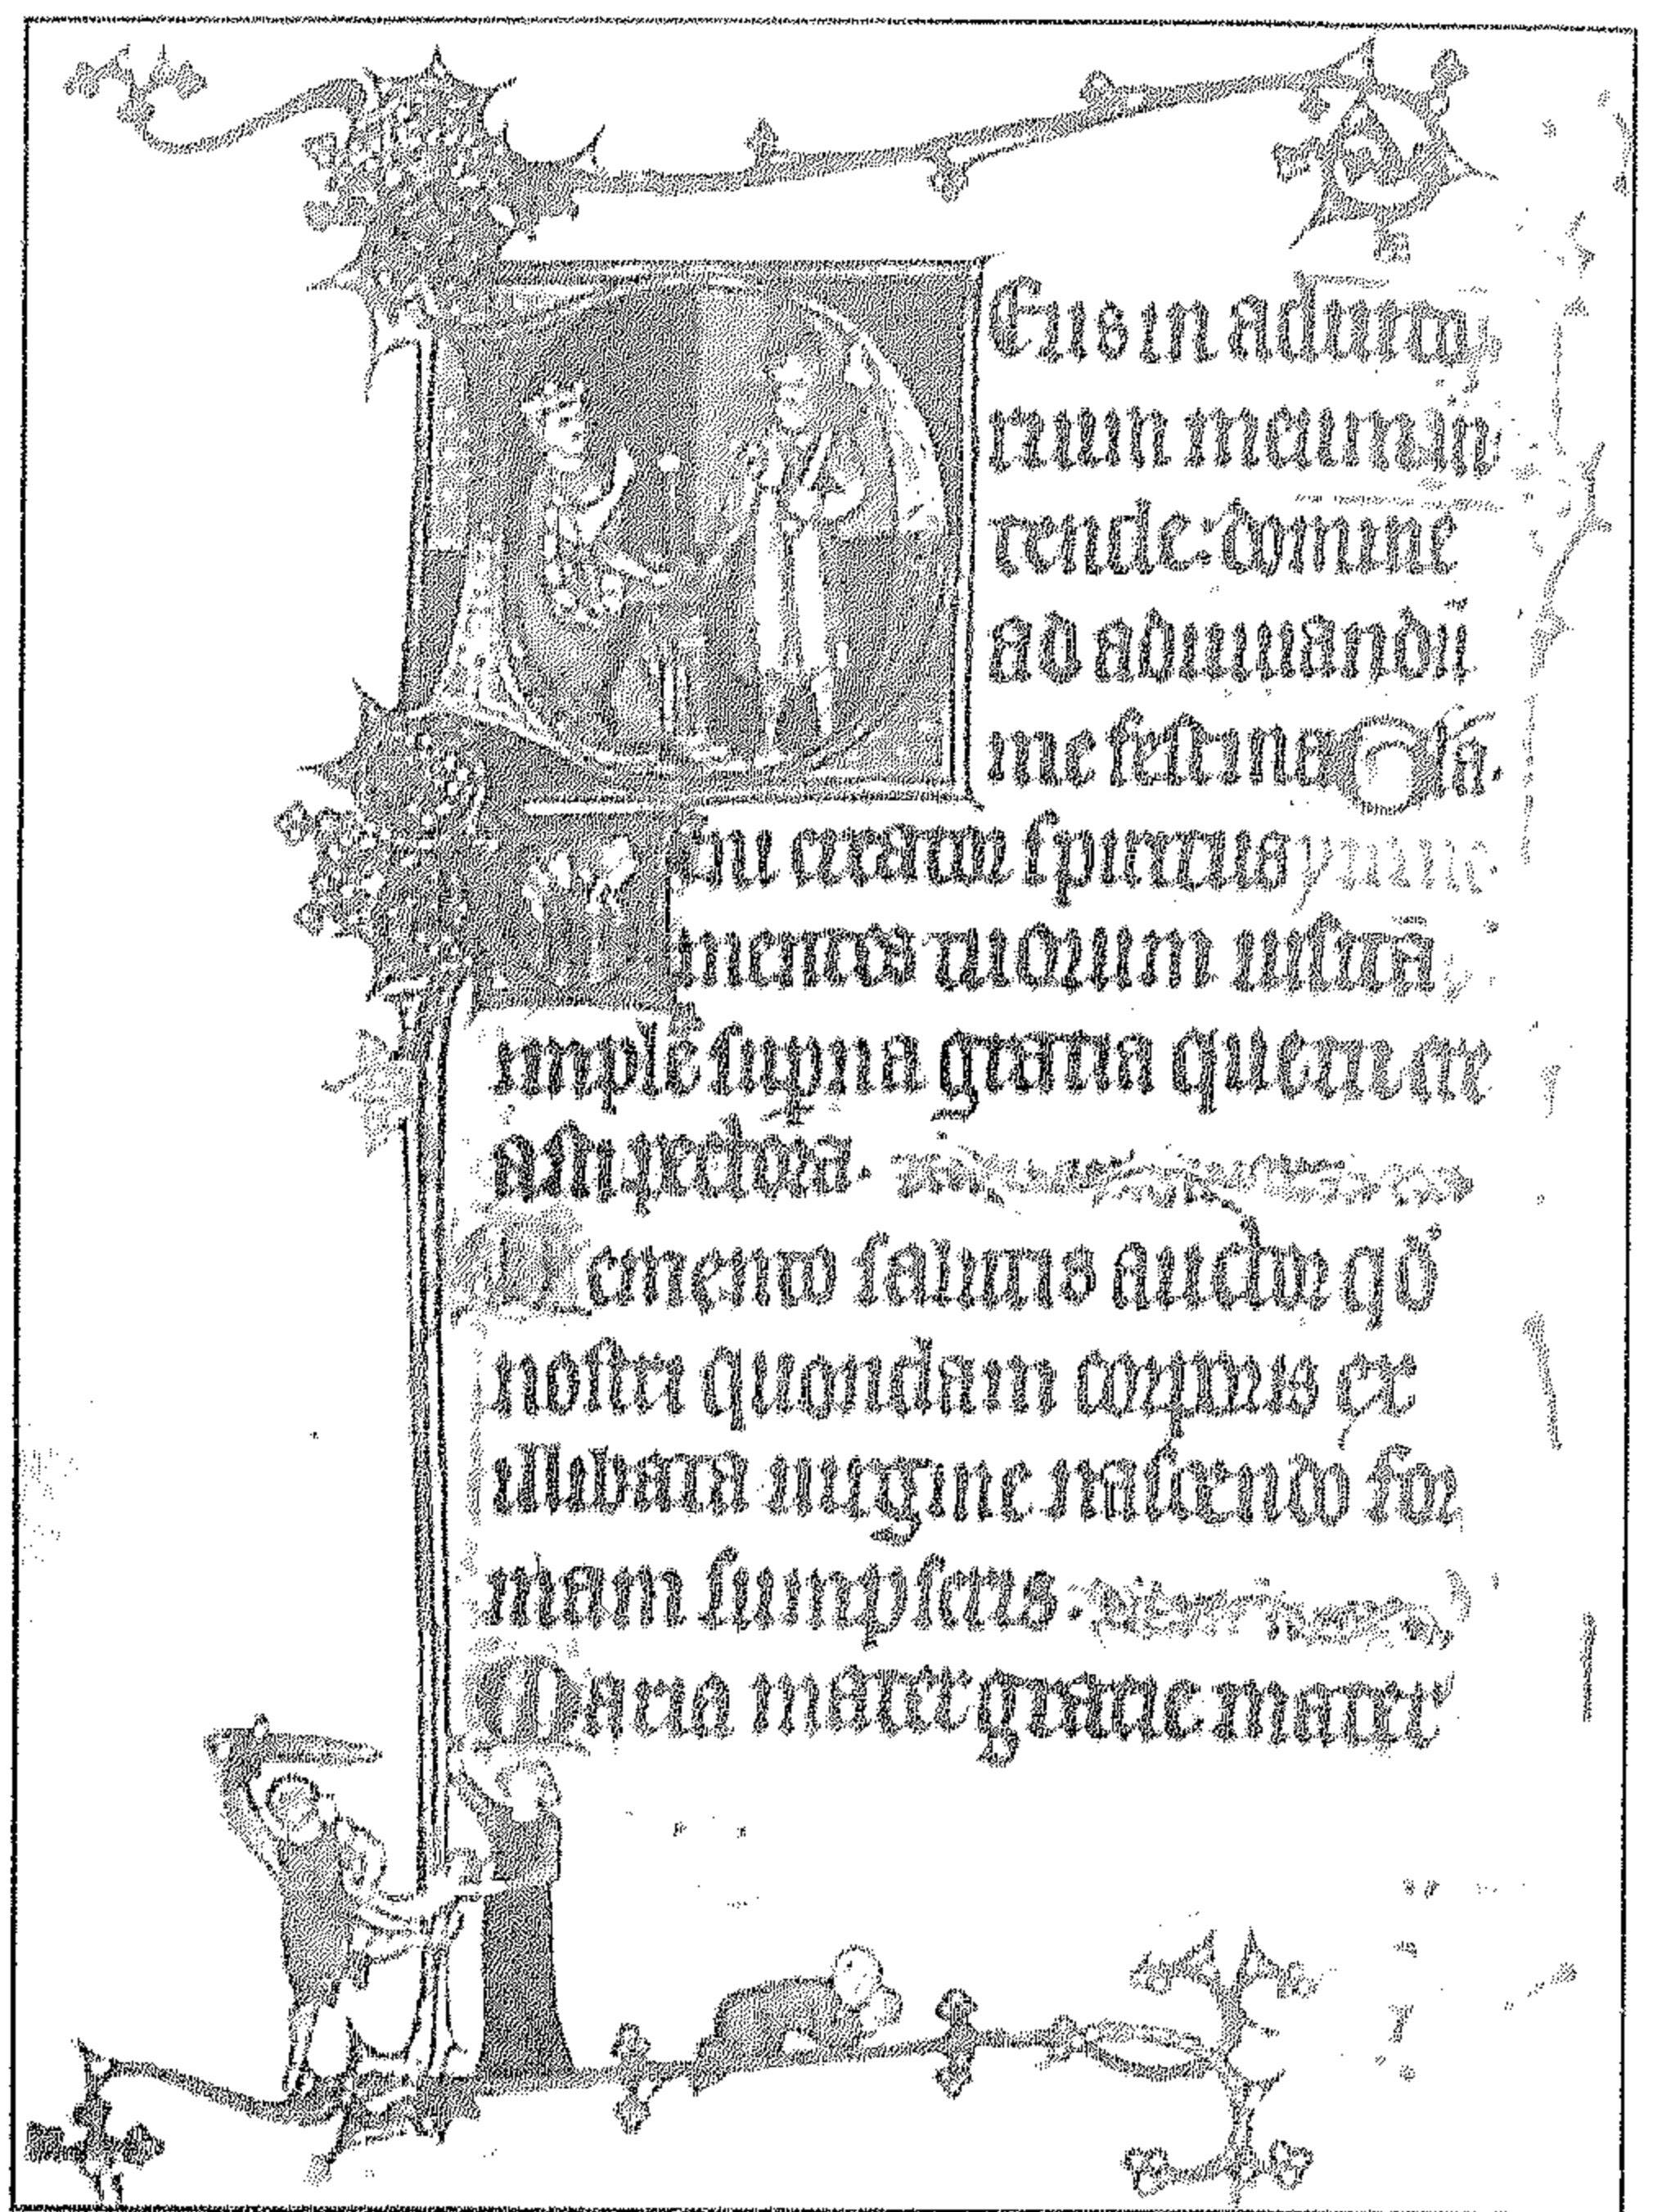 Eus in adiuto
rium meum in
tende: domine
ad adiuuandū
me festina Gľa.
eni creator spiritus ymnus
mentes tuorum uisita
imple sup̲na gratia que tu cre
asti pectora.
Memento salutis auctor qđ
nostri quondam corporis ex
illibata uirgine nascendo for
mam sumpseris.
Maria mater gratie mater